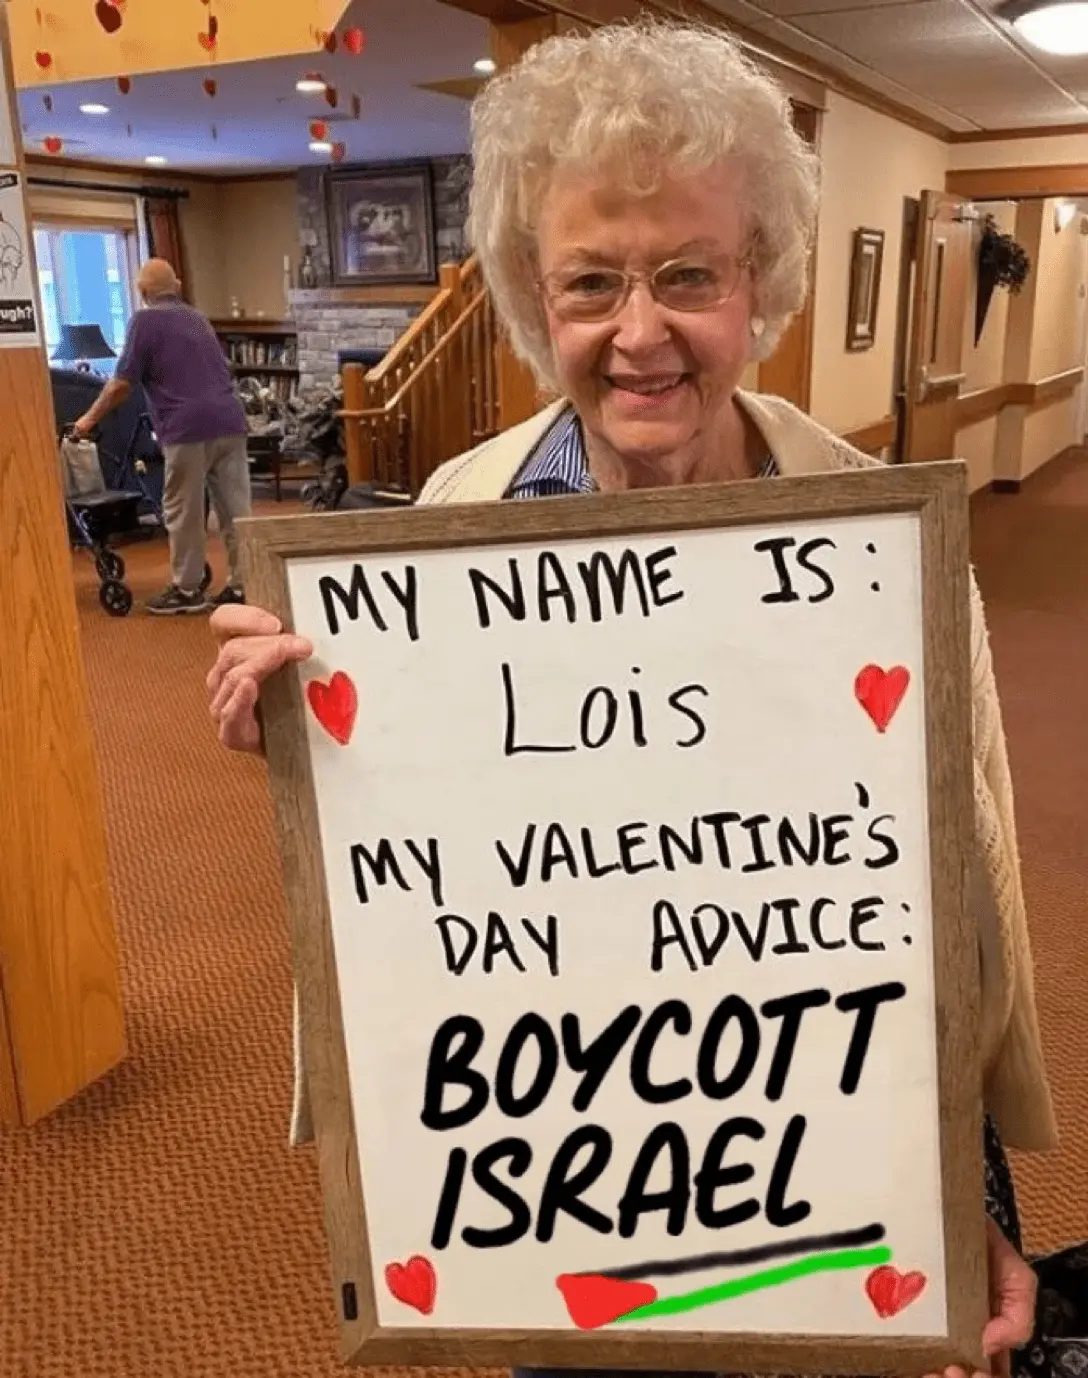 ugh?
MY NAME IS:
Lois
MY VALENTINE'S
DAY ADVICE:
BOYCOTT
ISRAEL